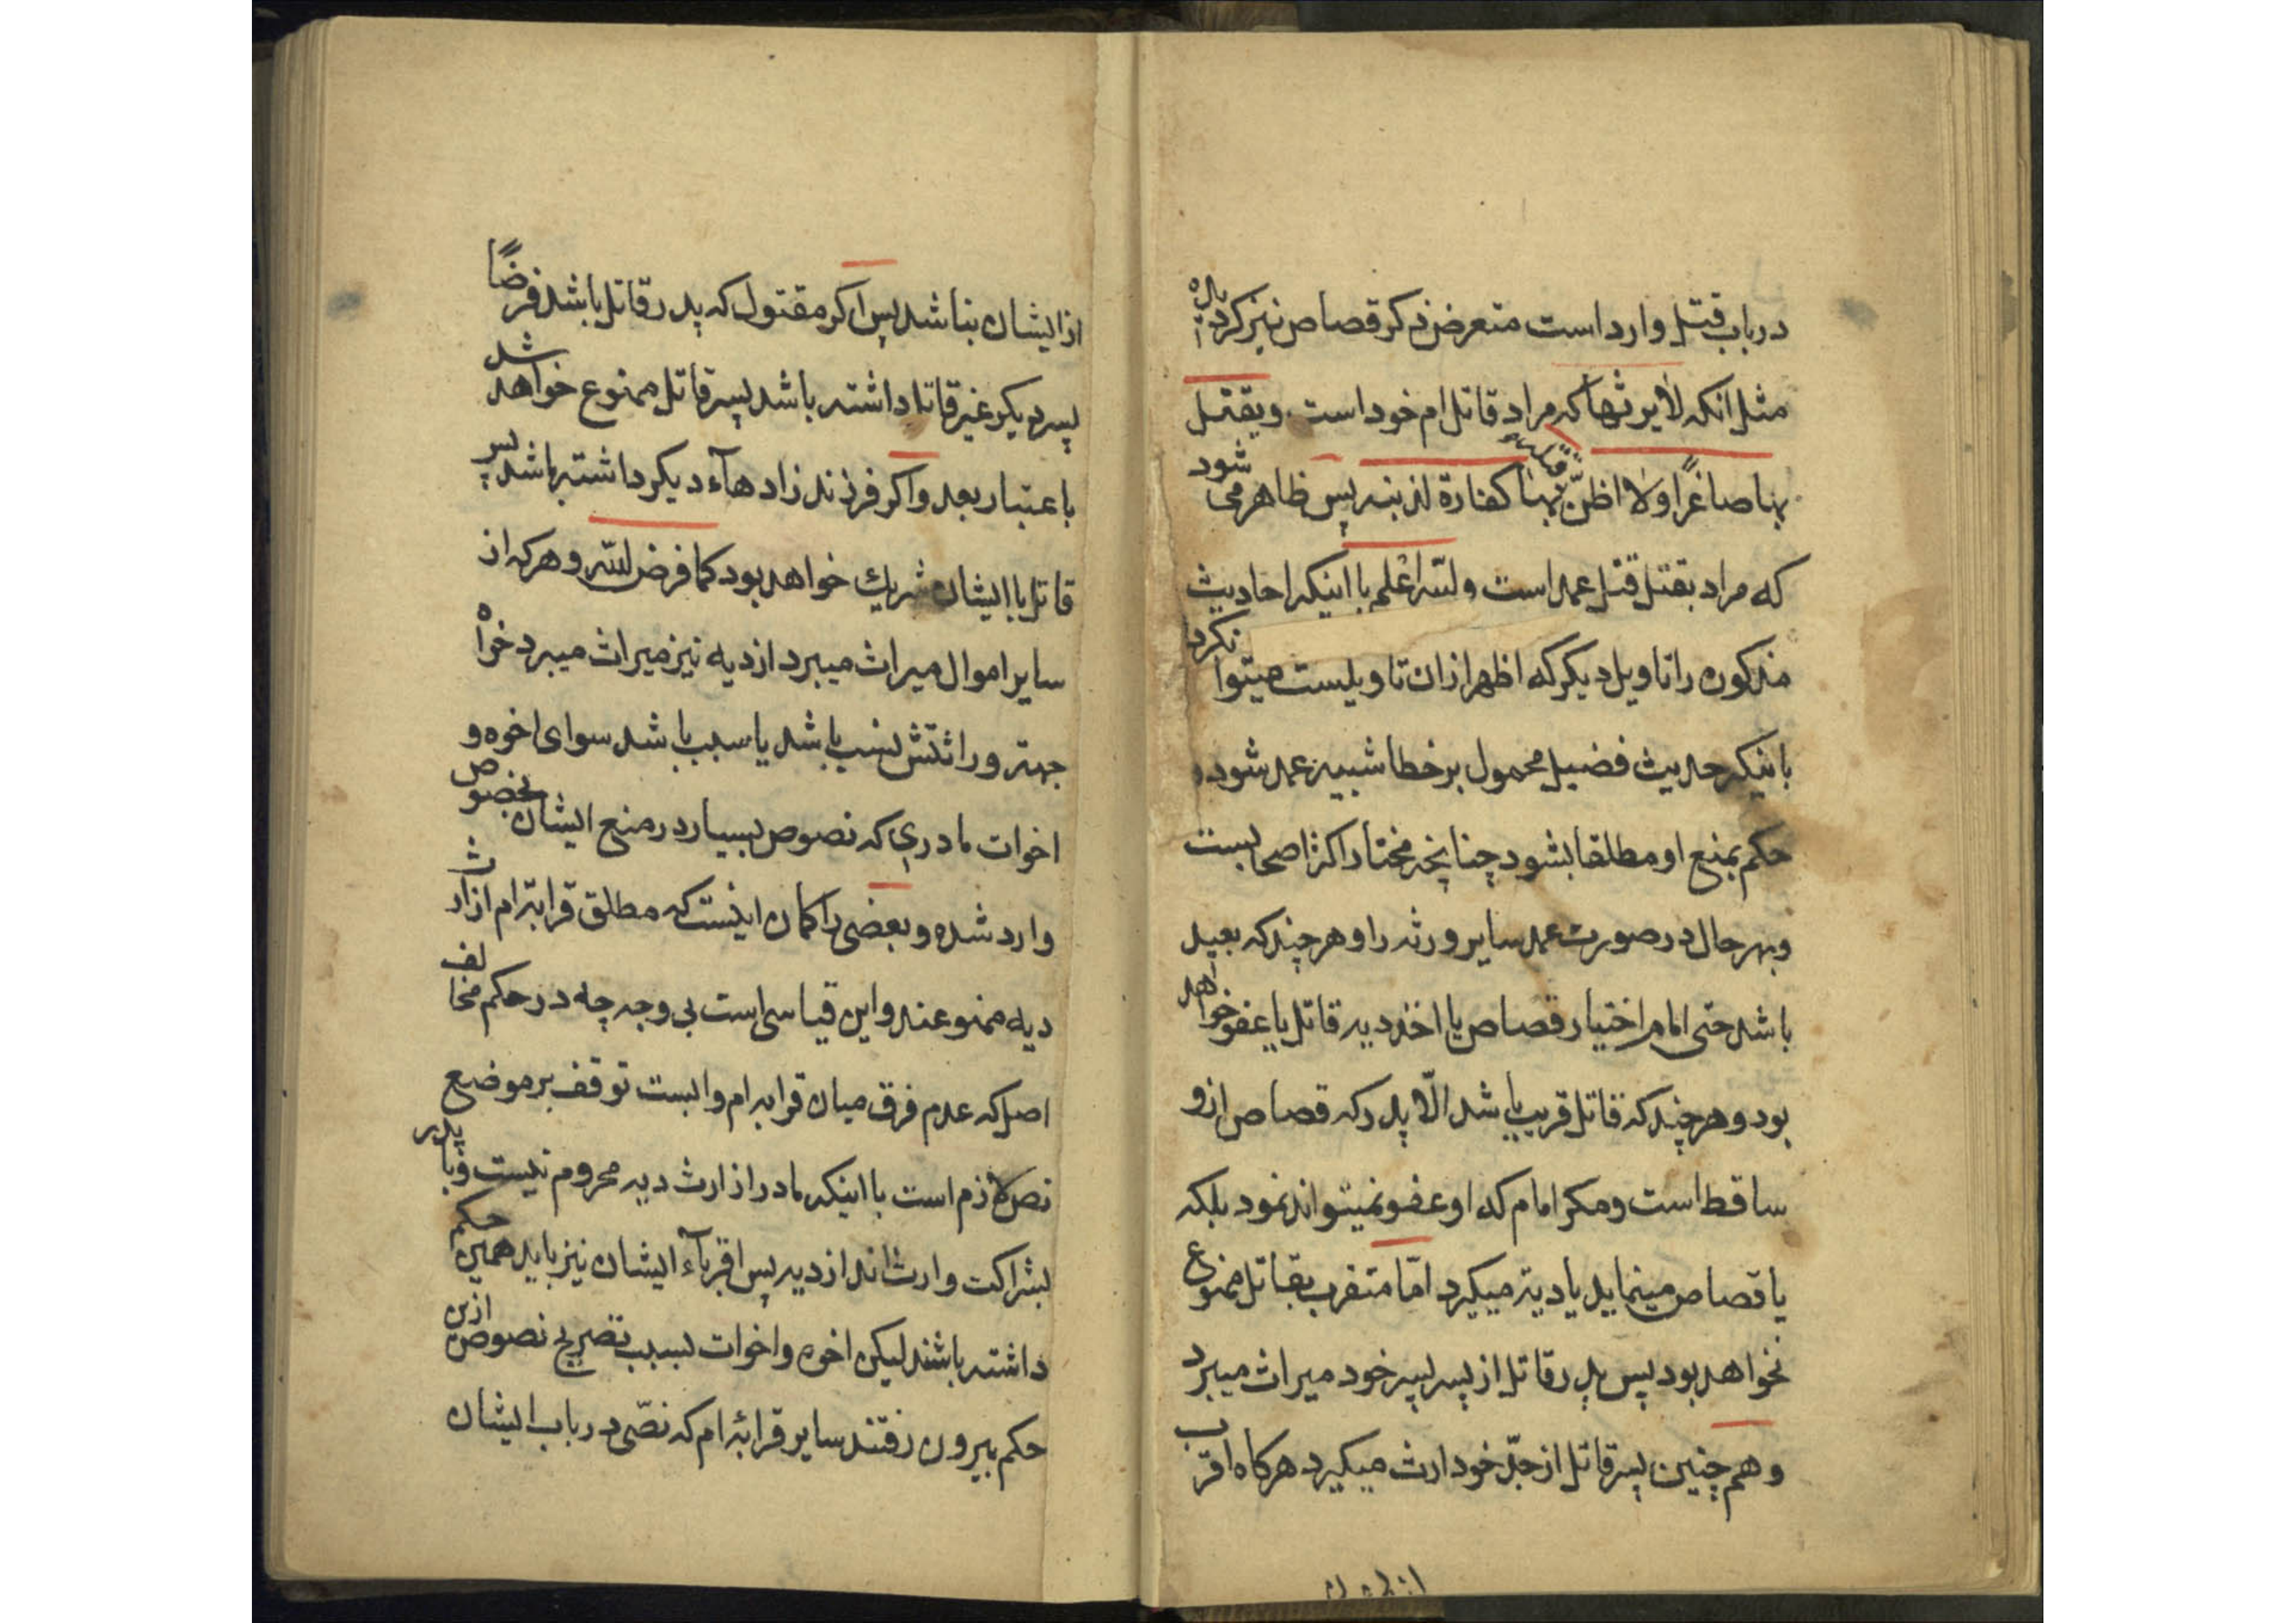 در باب قتل وارد است متعرض ذکر قصاص نیز کرده
مثل انکه لا یرثها که مراد قاتل ام خود است ویقتل
بها صاغرا ولا اظن قتله بها کفارة لذنبه پس ظاهر می شود
که مراد بقتل قتل عمد است والله اعلم با اینکه احادیث
مذکوره را تاویل دیکر که اظهر ازان تاویلست میتوا نکرد
باینکه حدیث فضیل محمول بر خطا شبیه عمد شود و
حکم بمنع او مطلقا بشود چنانچه مختار اکثر اصحابست
وبهر حال در صورت عمد سایر ورثه را و هر چند که بعید
باشد حتی امام اختیار قصاص یا اخذ دیه قاتل یا عفو خواهد
بود و هر چند که قاتل قریب باشد الّا پدر که قصاص ازو
ساقط است ومکر امام که او عفو نمیتواند نمود بلکه
یا قصاص مینماید یا دیة میکیرد امّا متقرب بقاتل ممنوع
نخواهد بود پس پدر قاتل از پسر پسر خود میراث میبرد
و هم چنین پسر قاتل از جدّ خود ارث میکیرد هر کاه اقرب
از ایشان بناشد پس اکر مقتول که پدر قاتل باشد فرضًا
پسر دیکر غیر قاتل داشته باشد پسر قاتل ممنوع خواهد شد
باعتبار بعد واکر فرزند زادهاء دیکر داشته باشد پسر
قاتل با ایشان شریك خواهد بود کما فرض الله و هر که از
سایر اموال میراث میبرد از دیه نیز میراث میبرد خواه
جهته وراثتش نسب باشد یا سبب باشد سوای اخوه و
اخوات مادری که نصوص بسیار در منع ایشان بخصوص
وارد شده و بعضی را کمان اینست که مطلق قرابة ام از ارث
دیه ممنوعند و این قیاسی است بی وجه چه در حکم مخالف
اصل که عدم فرق میان قرابه ام وابست توقف بر موضع
نص لازم است با اینکه مادر از ارث دیه محروم نیست وبا پدر
بشراکت وارث اند از دیه پس اقرباء ایشان نیز باید همین حکم
داشته باشند لیکن اخوه واخوات بسبب تصریح نصوص ازین
حکم بیرون رفتند سایر قرابه ام که نصّی در باب ایشان